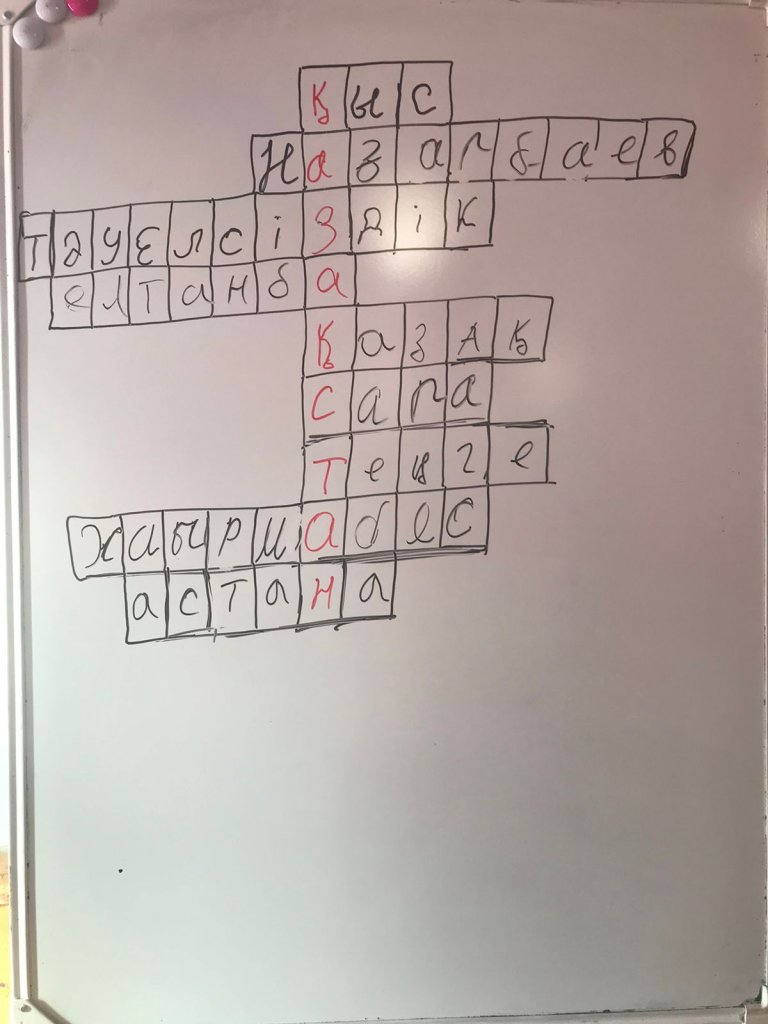 қыс
назарбаев
тәуелсіздік
елтанба
қазақ
сапа
теңге
жаырмабес
астана